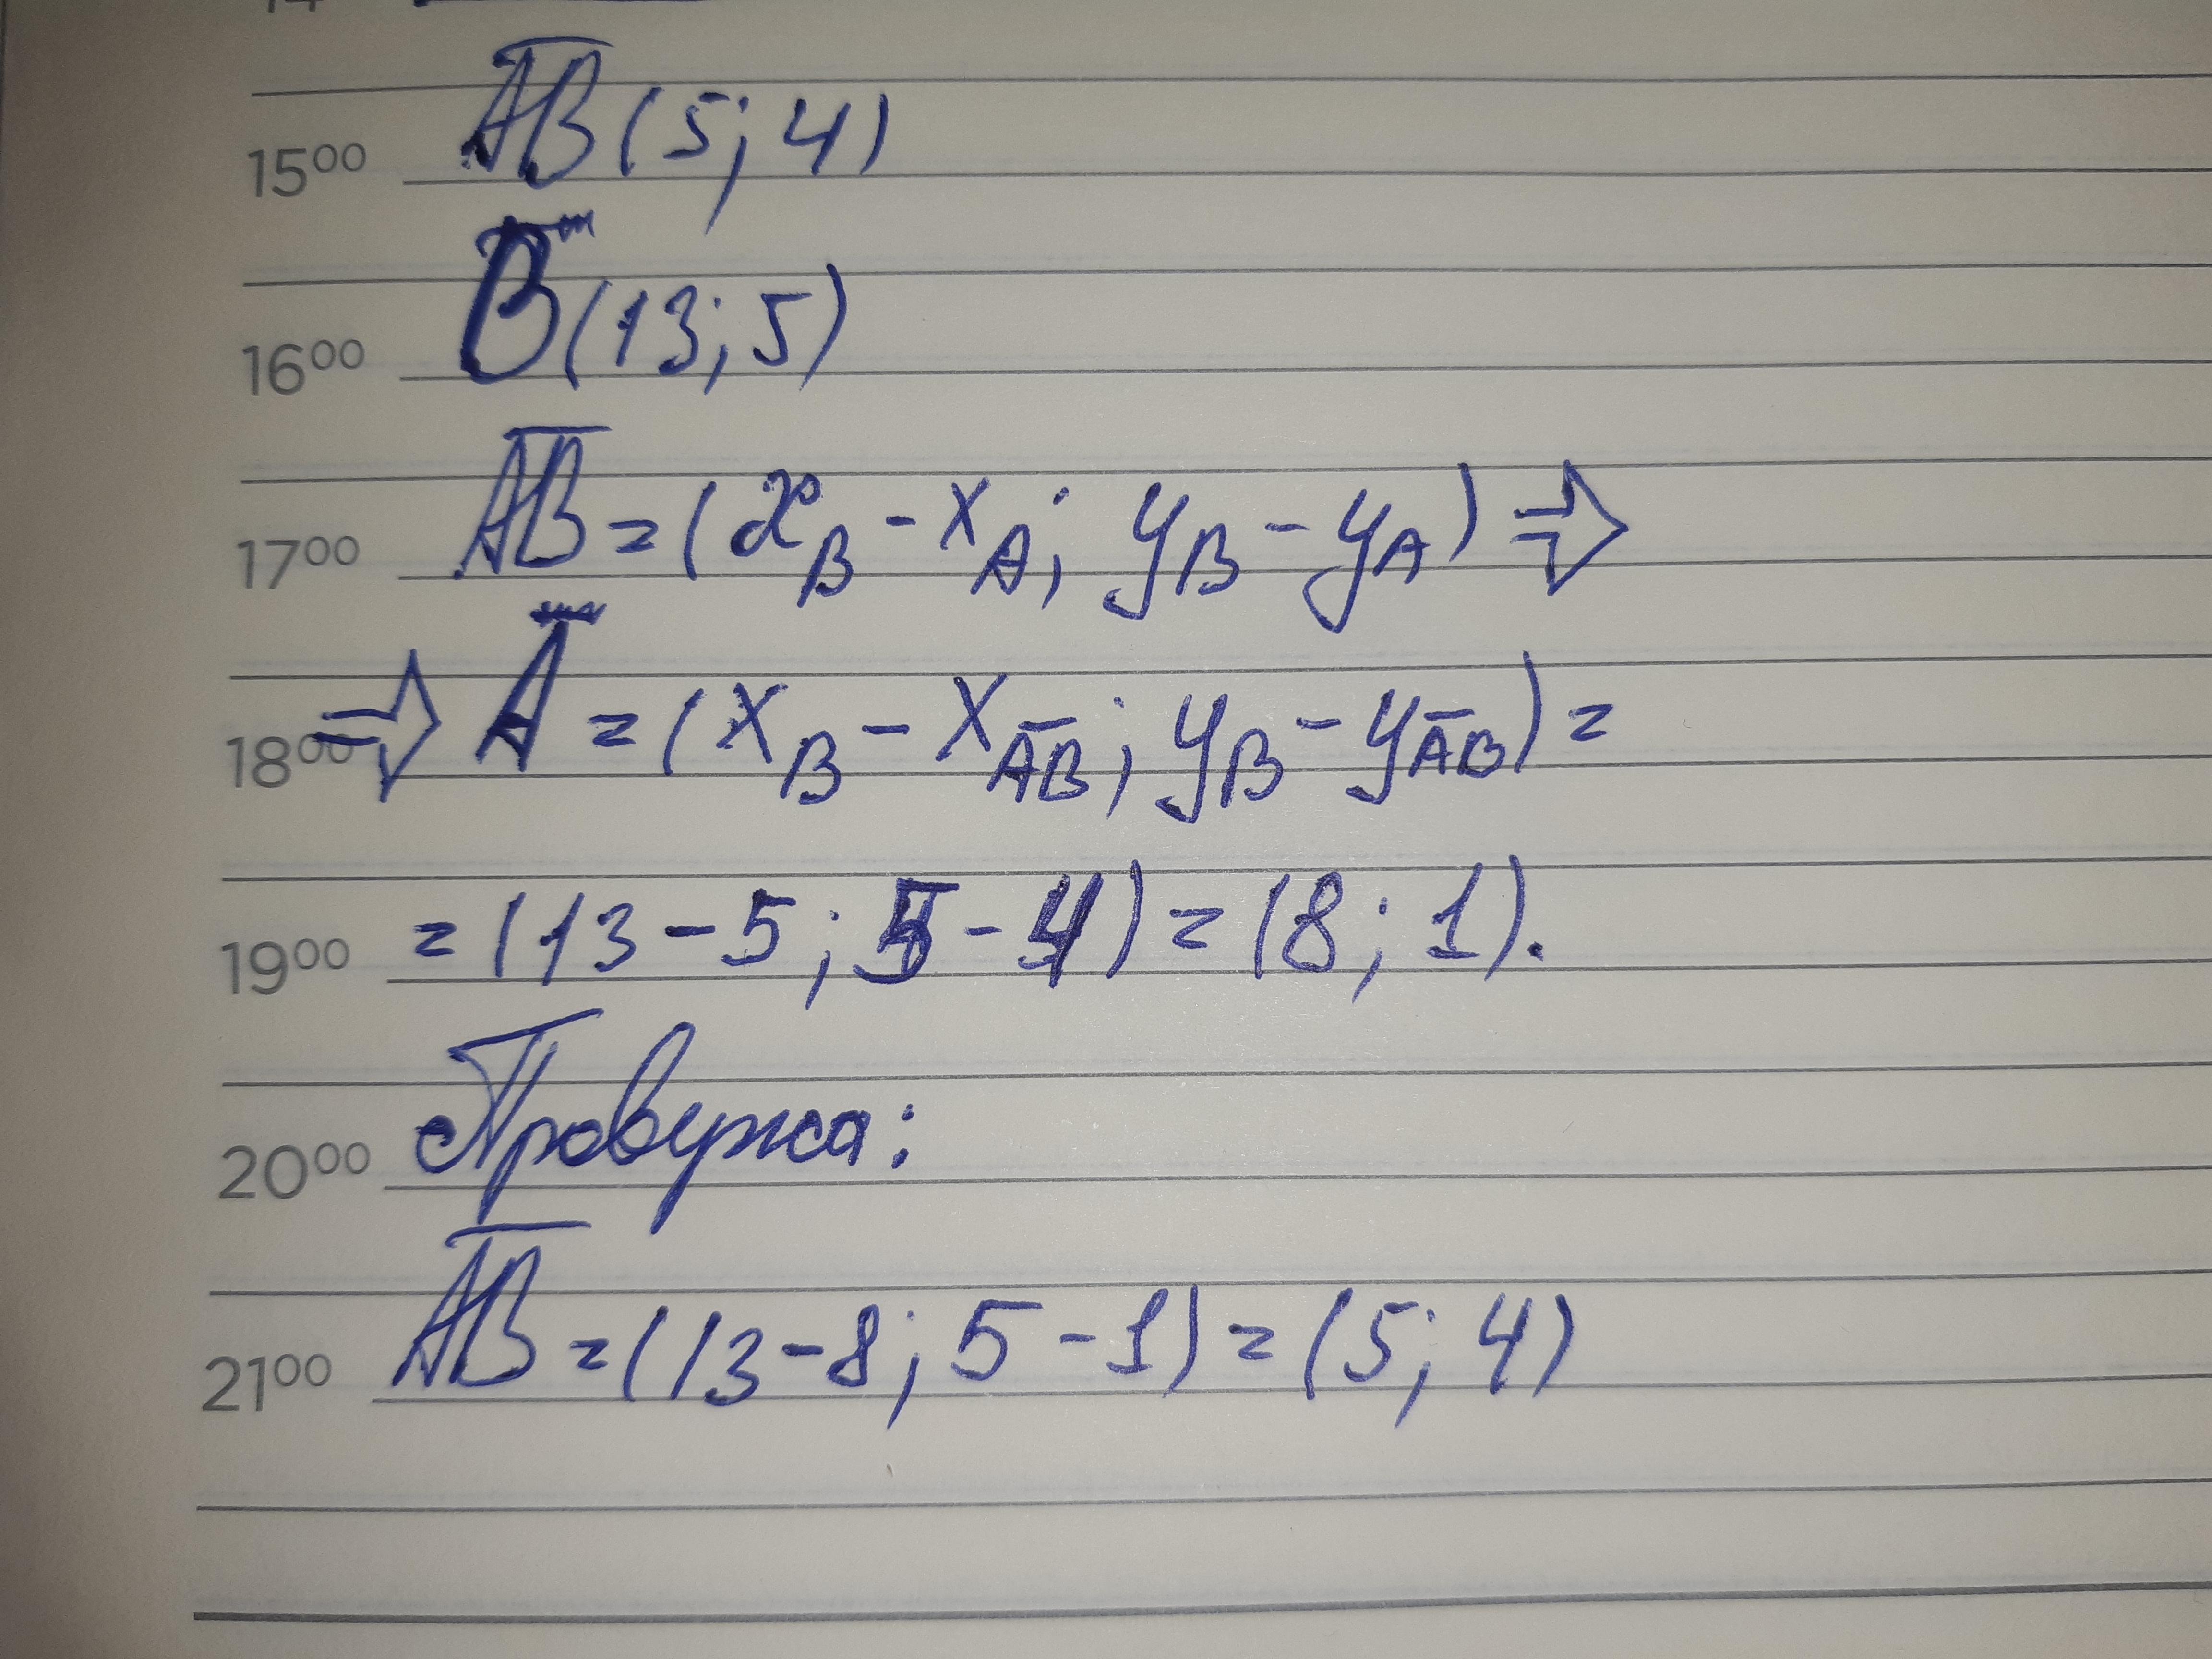 A̅B̅(5; 4)
15⁰⁰
B(13; 5)
16⁰⁰
A̅B̅ = (x_B - x_A; y_B - y_A) ⇒
17⁰⁰
⇒ A = (x_B - x_A̅B̅; y_B - y_A̅B̅) =
18⁰⁰
= (13 - 5; 5 - 4) = (8; 1).
19⁰⁰
Проверка:
20⁰⁰
A̅B̅ = (13 - 8; 5 - 1) = (5; 4)
21⁰⁰